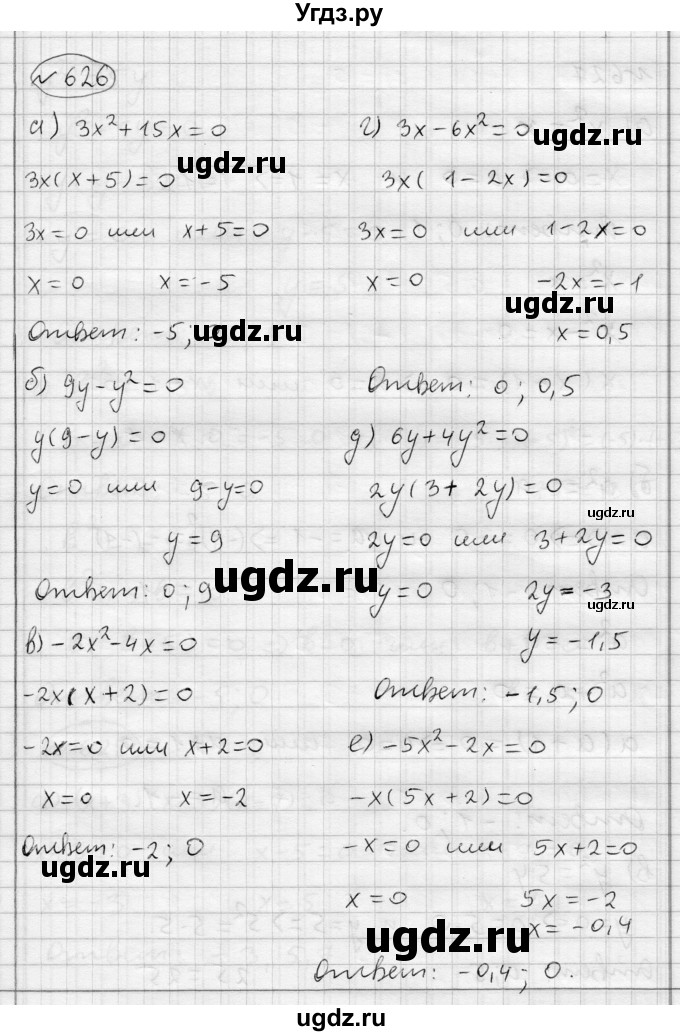 Угдз.ру
№ 626
а) 3x²+15x=0
3x(x+5)=0
3x=0 или x+5=0
x=0 x=-5
Ответ: -5;
б) 9y-y²=0
y(9-y)=0
y=0 или 9-y=0
y=9
Ответ: 0; 9
в) -2x²-4x=0
-2x(x+2)=0
-2x=0 или x+2=0
x=0 x=-2
Ответ: -2; 0
г) 3x-6x²=0
3x(1-2x)=0
3x=0 или 1-2x=0
x=0 -2x=-1
x=0,5
Ответ: 0; 0,5
д) 6y+4y²=0
2y(3+2y)=0
2y=0 или 3+2y=0
y=0 2y=-3
y=-1,5
Ответ: -1,5; 0
е) -5x²-2x=0
-x(5x+2)=0
-x=0 или 5x+2=0
x=0 5x=-2
x=-0,4
Ответ: -0,4; 0.
ugdz.ru
ugdz.ru
ugdz.ru
ugdz.ru
ugdz.ru
ugdz.ru
ugdz.ru
ugdz.ru
ugdz.ru
ugdz.ru